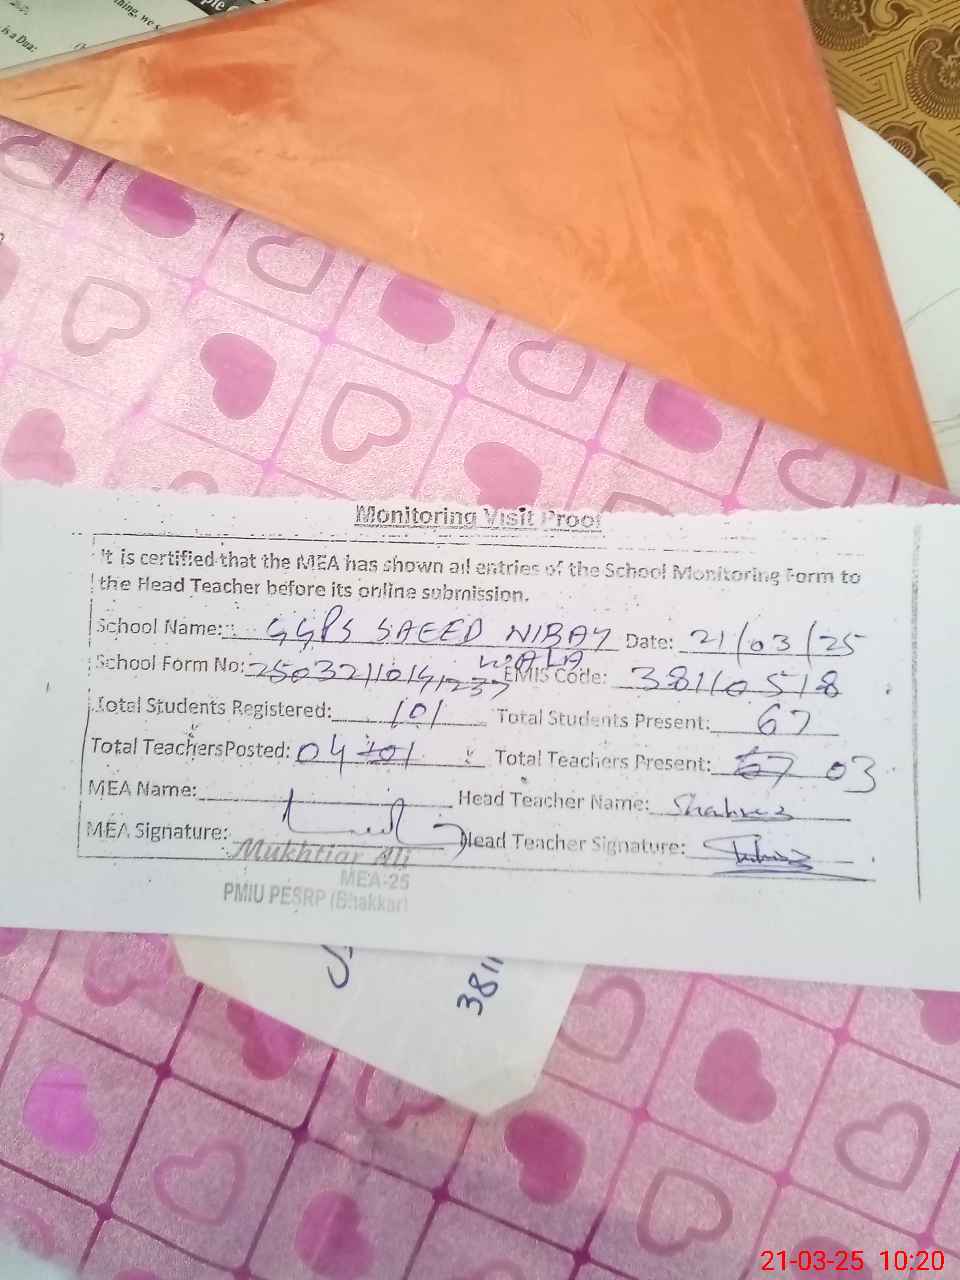 thing, we s
is a Dua:
Monitoring Visit Proof
It is certified that the MEA has shown all entries of the School Monitoring Form to
the Head Teacher before its online submission.
School Name: GGPS SAEED NIBAY WALA Date: 21/03/25
School Form No: EMIS Code: 38110518
Total Students Registered: 101 Total Students Present: 67
Total Teachers Posted: 04 101 Total Teachers Present: 67 03
MEA Name: Head Teacher Name:
MEA Signature: Head Teacher Signature:
Mukhtiar Ali
MEA-25
PMIU PESRP (Bhakkar)
3811
21-03-25 10:20